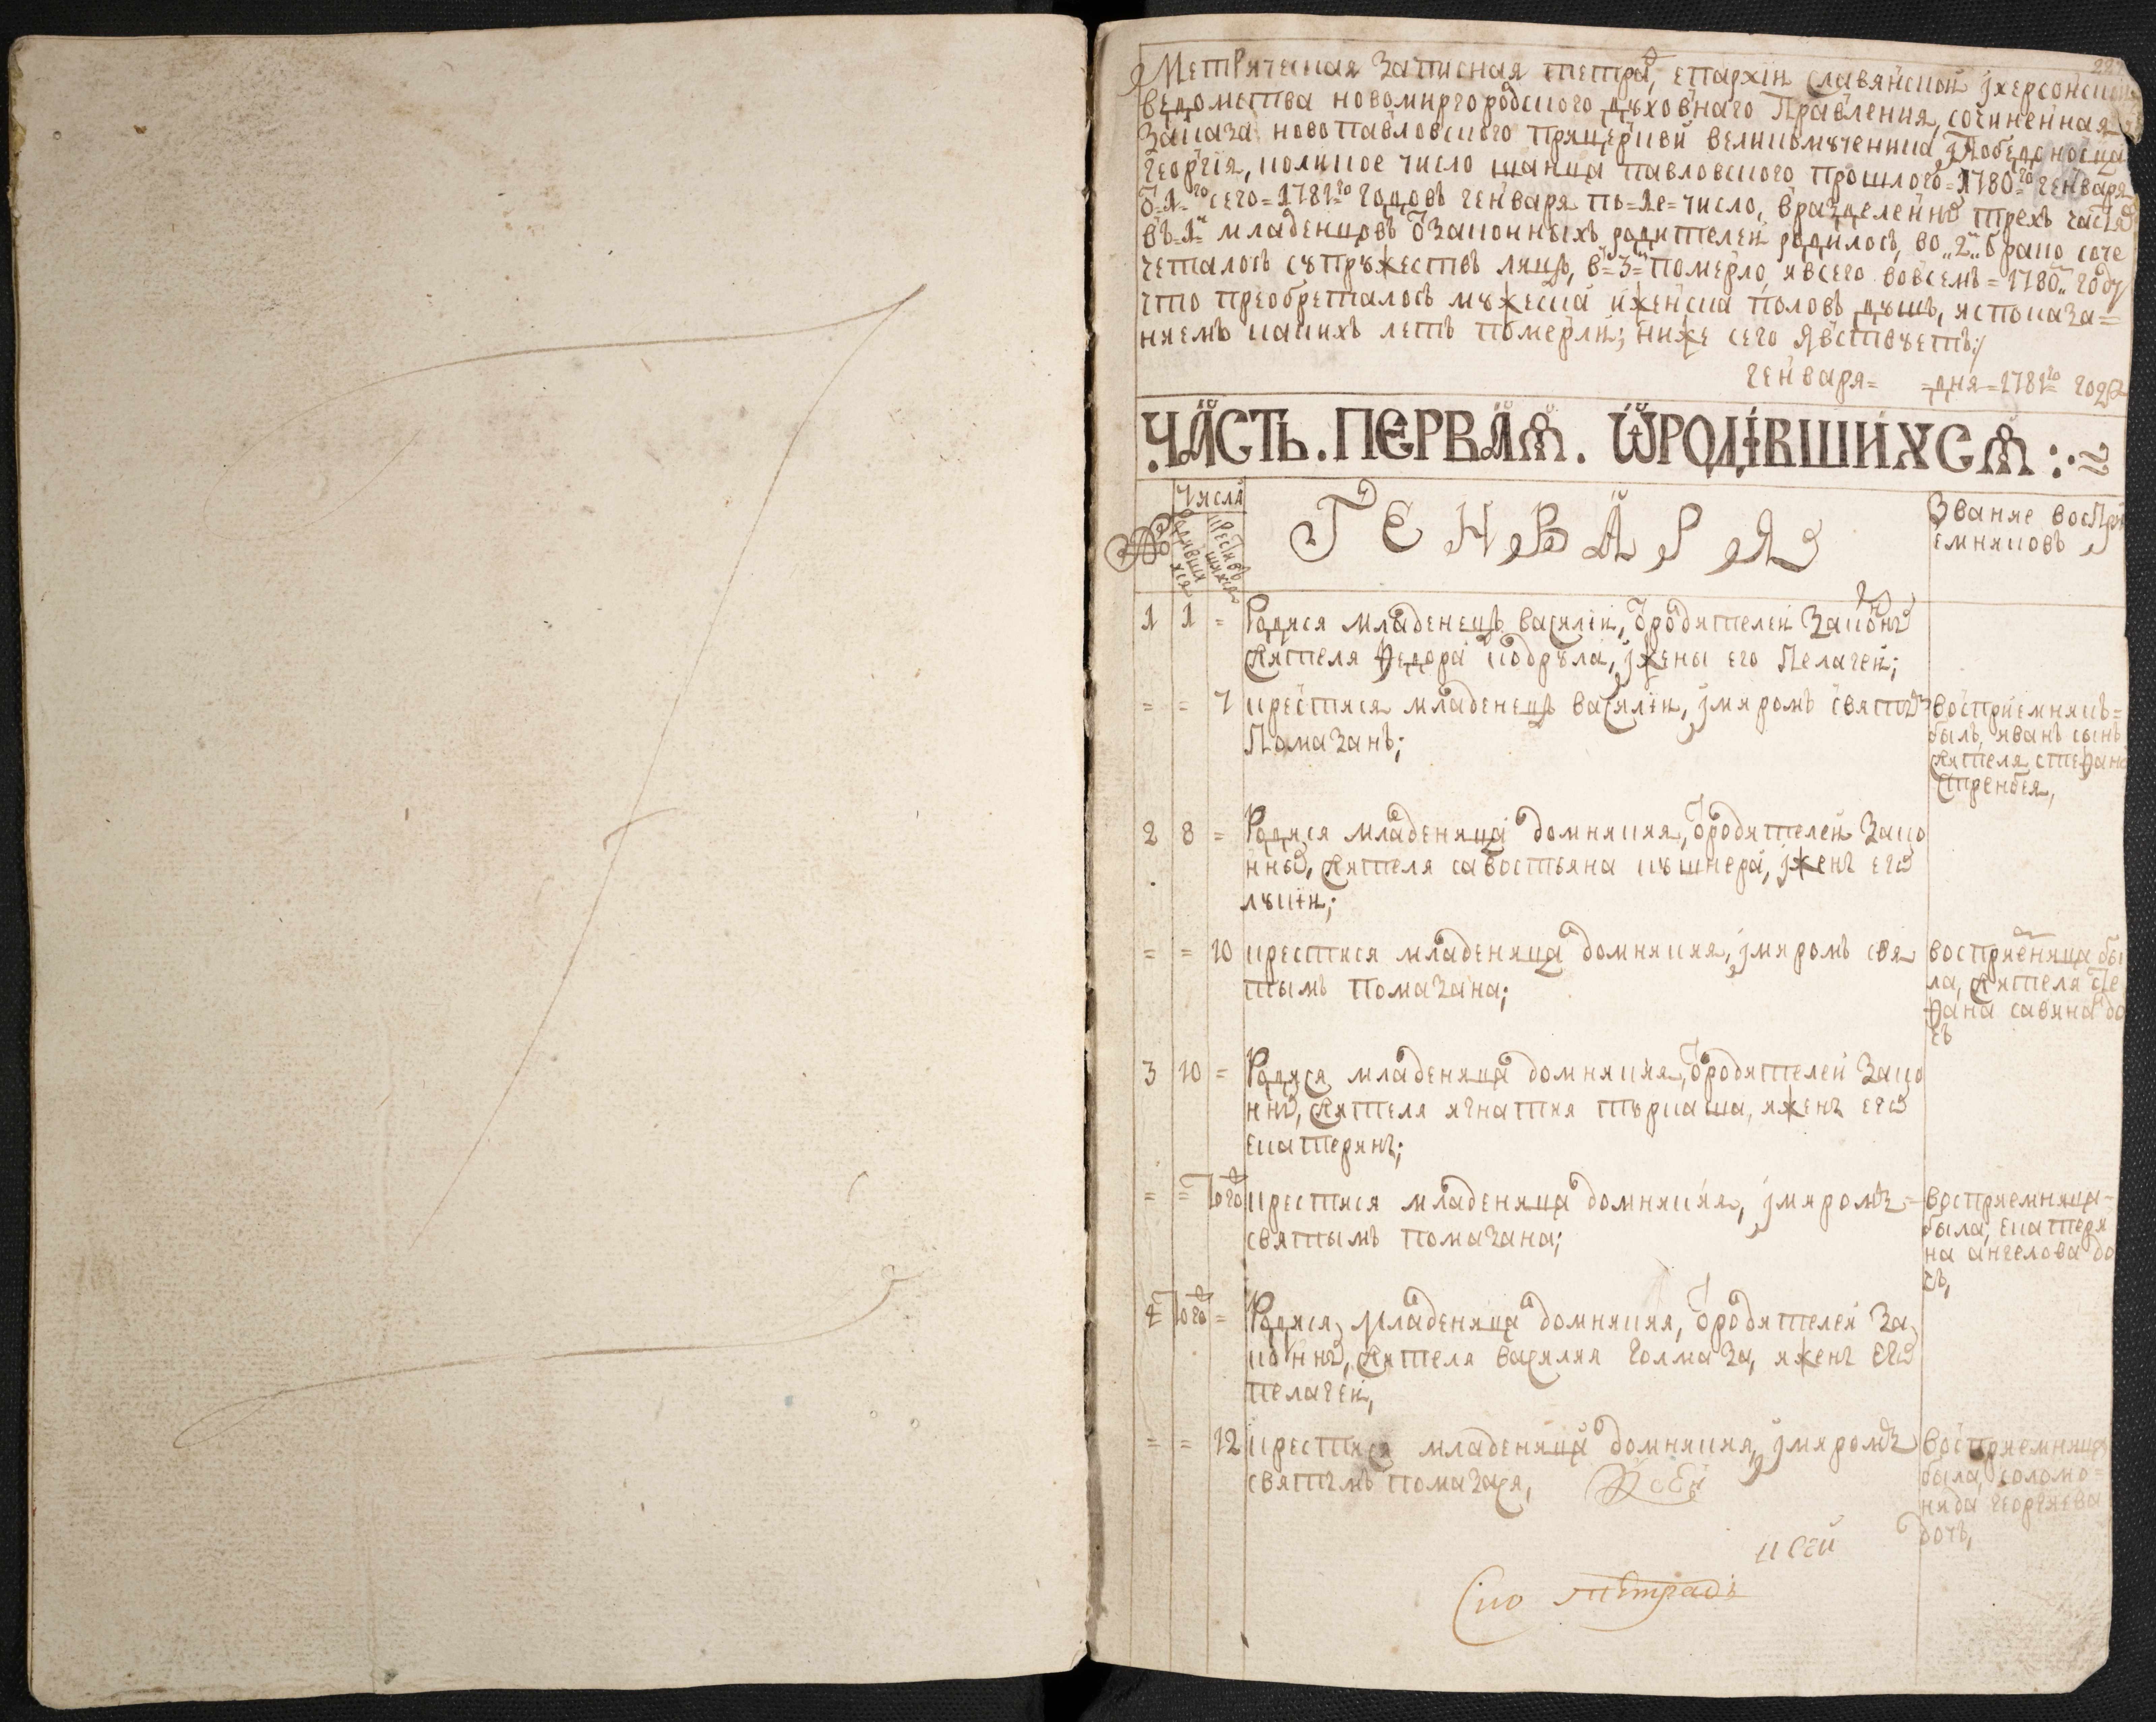 Метрическая Записная тетрад, епархіи Славянской и херсонской
ведомства новомиргородского духовнаго Правления, сочиненная
Заказа новопавловского при церкви великомученика и Победоносца
георгія, коликое число шанца павловского прошлого=1780=го генваря
ѿ=1=го сего=1781=го годовъ генваря по=1е=число, в разделении трехъ частяхъ
въ=1й младенцовъ ѿ Законныхъ родителей родилось, во „2„й брако соче
четалось супружествъ лицъ, в=3=й померло, и всего во всемъ=1780„ году
что преобреталось мужеска и женска половъ душъ, и с показа=
нием какихъ летъ померли; ниже сего Явствуетъ:/
генваря= =дня=1781го году
ЧАСТЬ. ПЕРВАѦ. ѾРОДИВШИХСѦ :~
Числа
№
родивши
хся
крестив
шихся
ГЕНВАРЯ
Звание воспри
емниковъ
1 1 = Родися младенецъ василій, ѿ родителей Законных
жителя Ѳедора кобрула, и жены его Пелагеи;
= = 7 крестися младенецъ василій, и миромъ святым
Помазанъ;
воспріемникъ=
былъ, иванъ сынъ
жителя стеѳана
стренбея,
2 8 = Родися младеница домникия, ѿ родителей Зако
нных, жителя савостьяна кушнера, и жены его
лукіи;
= = 10 крестися младеница домникия, и миромъ свя
тымъ помазана;
восприемница бы
ла, жителя сте
ѳана савина до
чъ
3 10 = Родися младеница домникия, ѿ родителей Зако
нных, жителя игнатия туркаша, и жены его
екатерины;
= = того крестися младеница домникия, и миромъ=
святымъ помазана;
восприемница=
была, екатери
на ангелова до
чъ,
4 того = Родися, младеница домникия, ѿ родителей За
конных, жителя василия голмаза, и жены его
пелагеи,
= = 12 крестися младеница домникия, и миромъ
святымъ помазася,
восприемница
была, соломо=
нида георгиева
дочъ,
к сей
к сей
Сию тетрадь